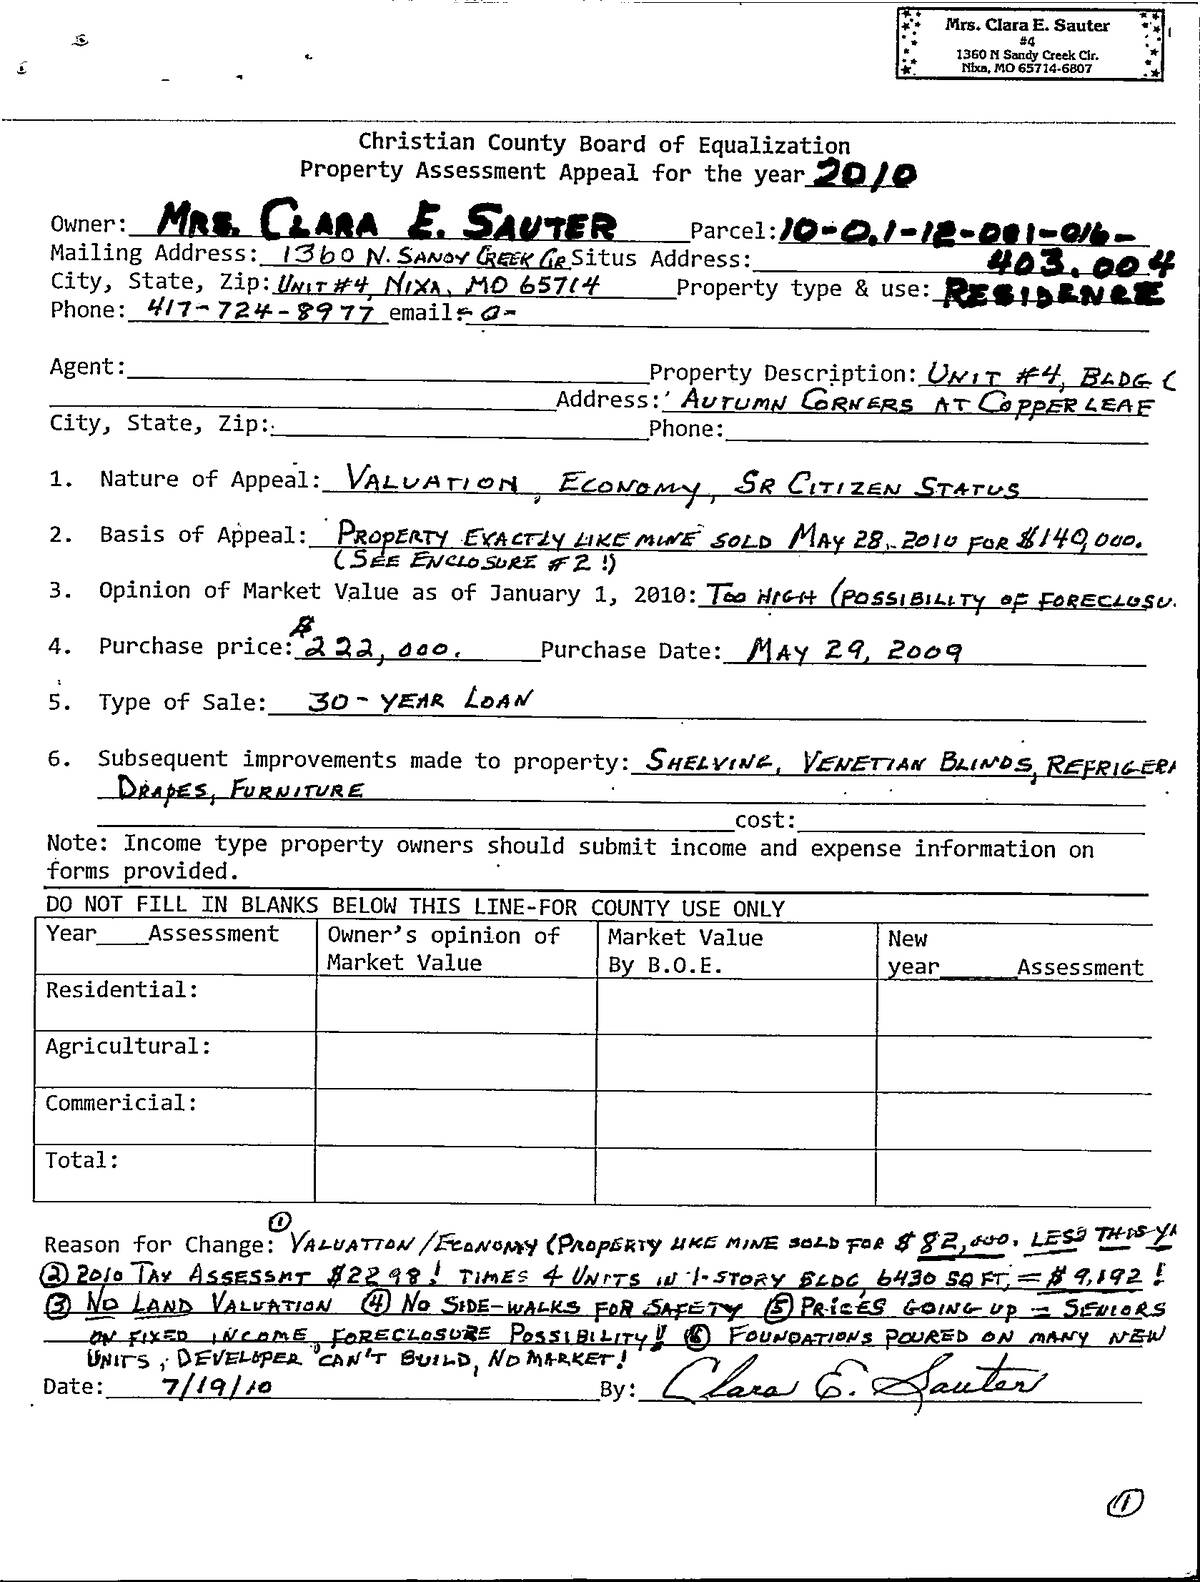 Mrs. Clara E. Sauter
#4
1360 N Sandy Creek Cir.
Nixa, MO 65714-6807
Christian County Board of Equalization
Property Assessment Appeal for the year 2010
Owner: MRS. CLARA E. SAUTER Parcel: 10-0.1-12-001-016-
Mailing Address: 1360 N. SANDY CREEK CIR Situs Address: 403.004
City, State, Zip: UNIT #4, NIXA, MO 65714 Property type & use: RESIDENCE
Phone: 417-724-8977 email: -0-
Agent: Property Description: UNIT #4, BLDG C
Address: AUTUMN CORNERS AT COPPER LEAF
City, State, Zip: Phone:
1. Nature of Appeal: VALUATION, ECONOMY, SR CITIZEN STATUS
2. Basis of Appeal: PROPERTY EXACTLY LIKE MINE SOLD MAY 28, 2010 FOR $140,000.
(SEE ENCLOSURE #2!)
3. Opinion of Market Value as of January 1, 2010: TOO HIGH (POSSIBILITY OF FORECLOSU
4. Purchase price: $222,000. Purchase Date: MAY 29, 2009
5. Type of Sale: 30-YEAR LOAN
6. Subsequent improvements made to property: SHELVING, VENETIAN BLINDS, REFRIGERA
DRAPES, FURNITURE
cost:
Note: Income type property owners should submit income and expense information on
forms provided.
DO NOT FILL IN BLANKS BELOW THIS LINE-FOR COUNTY USE ONLY
Year____Assessment Owner's opinion of Market Value By B.O.E. New
Market Value year______Assessment
Residential:
Agricultural:
Commericial:
Total:
Reason for Change: ① VALUATION/ECONOMY (PROPERTY LIKE MINE SOLD FOR $82,000. LESS THIS YR
② 2010 TAX ASSESSMT $2298! TIMES 4 UNITS IN 1-STORY BLDG, 6430 SQ FT, = $9,192!
③ NO LAND VALUATION ④ NO SIDE-WALKS FOR SAFETY ⑤ PRICES GOING UP = SENIORS
ON FIXED INCOME, FORECLOSURE POSSIBILITY!! ⑥ FOUNDATIONS POURED ON MANY NEW
UNITS, DEVELOPER CAN'T BUILD, NO MARKET!
Date: 7/19/10 By: Clara E. Sauter
①